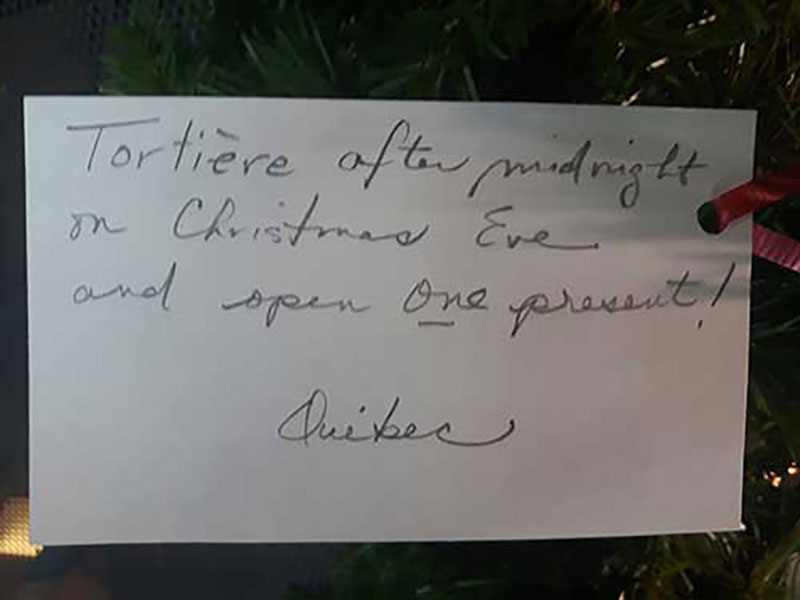 Tortière after midnight
on Christmas Eve
and open One present!
Québec